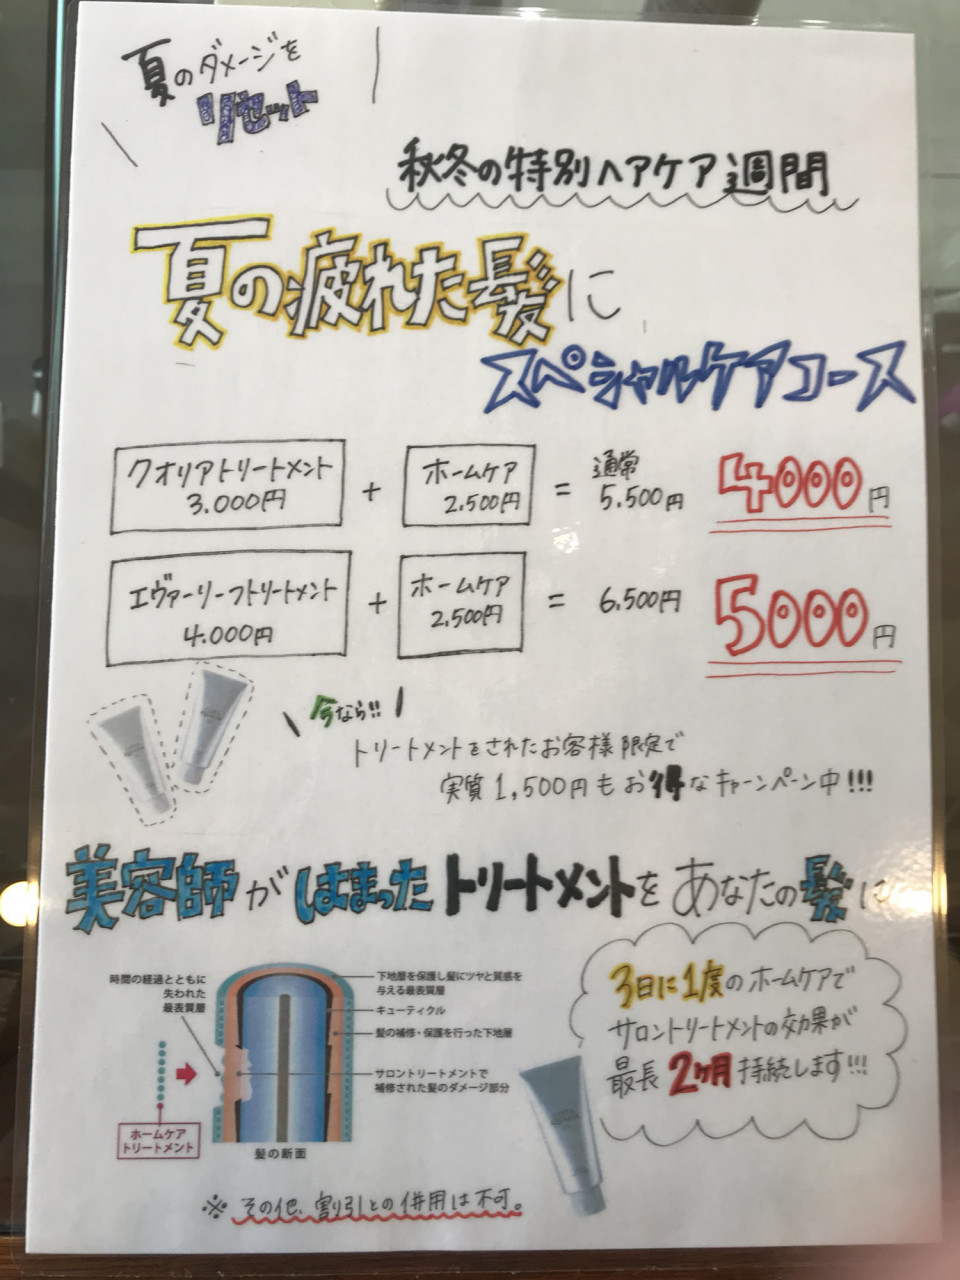 夏のダメージを
リセット
秋冬の特別ヘアケア週間
夏の疲れた髪に
スペシャルケアコース
クオリアトリートメント
3.000円
+
ホームケア
2.500円
=
通常
5.500円
4000円
エヴァーリーフトリートメント
4.000円
+
ホームケア
2.500円
=
6.500円
5000円
今なら!!
トリートメントをされたお客様限定で
実質1,500円もお得なキャンペーン中!!!
美容師がはまったトリートメントをあなたの髪に
時間の経過とともに
失われた
最表質層
下地層を保護し髪にツヤと質感を
与える最表質層
キューティクル
髪の補修・保護を行った下地層
サロントリートメントで
補修された髪のダメージ部分
ホームケア
トリートメント
髪の断面
3日に1度のホームケアで
サロントリートメントの効果が
最長2ヶ月持続します!!!
※その他、割り引との併用は不可。